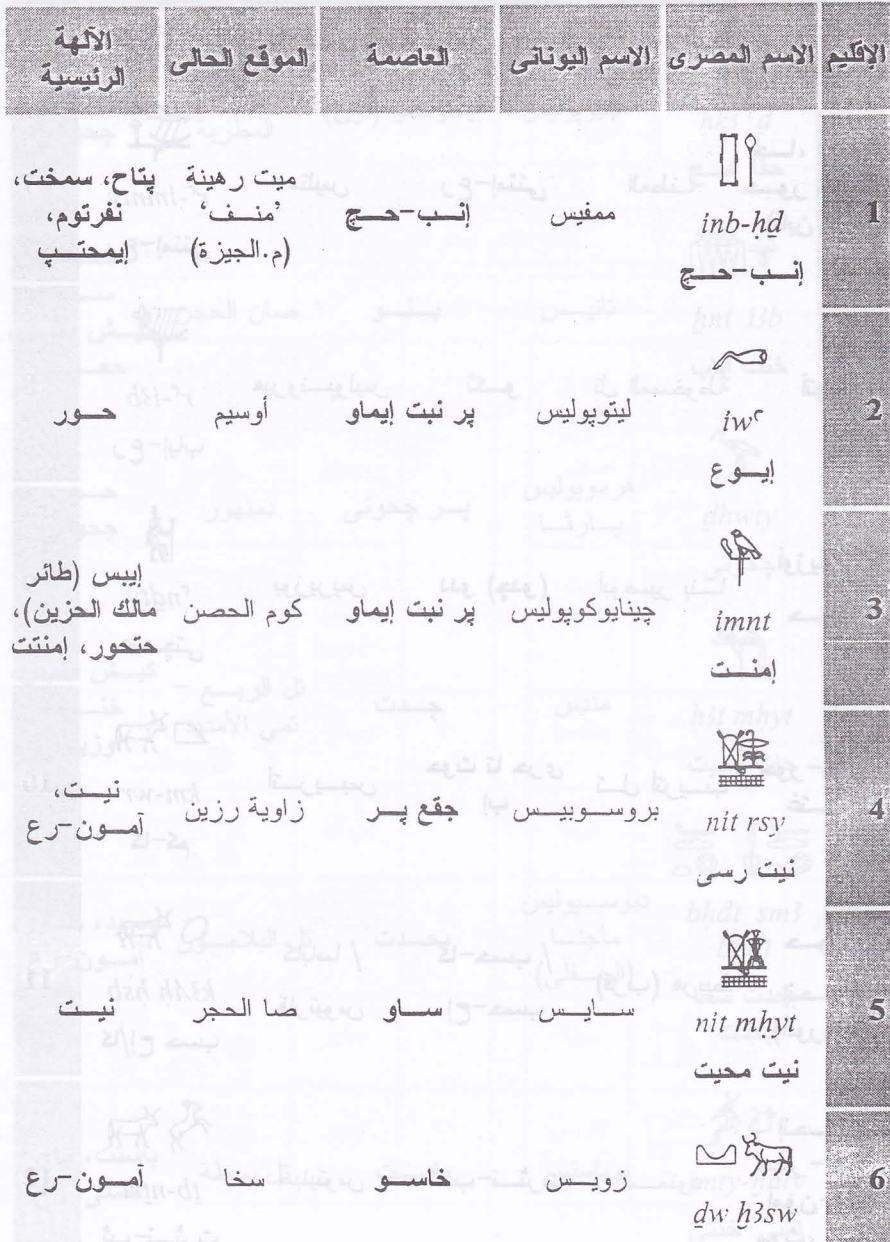 الإقليم الاسم المصرى الاسم اليونانى العاصمة الموقع الحالى الآلهة الرئيسية
1
inb-ḥḏ
إنب-حچ
ممفيس
إنب-حچ
ميت رهينة
’منف‘
(م.الجيزة)
پتاح، سمخت،
نفرتوم،
إيمحتپ
2
iwꜥ
إيوع
ليتوپوليس
پر نبت إيماو
أوسيم
حور
3
imnt
إمنت
چينايوكوپوليس
پر نبت إيماو
كوم الحصن
إيبس (طائر
مالك الحزين)،
حتحور، إمنتت
4
nit rsy
نيت رسى
بروسوبيس
جقع پر
زاوية رزين
نيت،
آمون-رع
5
nit mḥyt
نيت محيت
سايس
ساو
صا الحجر
نيت
6
ḏw ḫ3sw
زويس
خاسو
سخا
آمون-رع